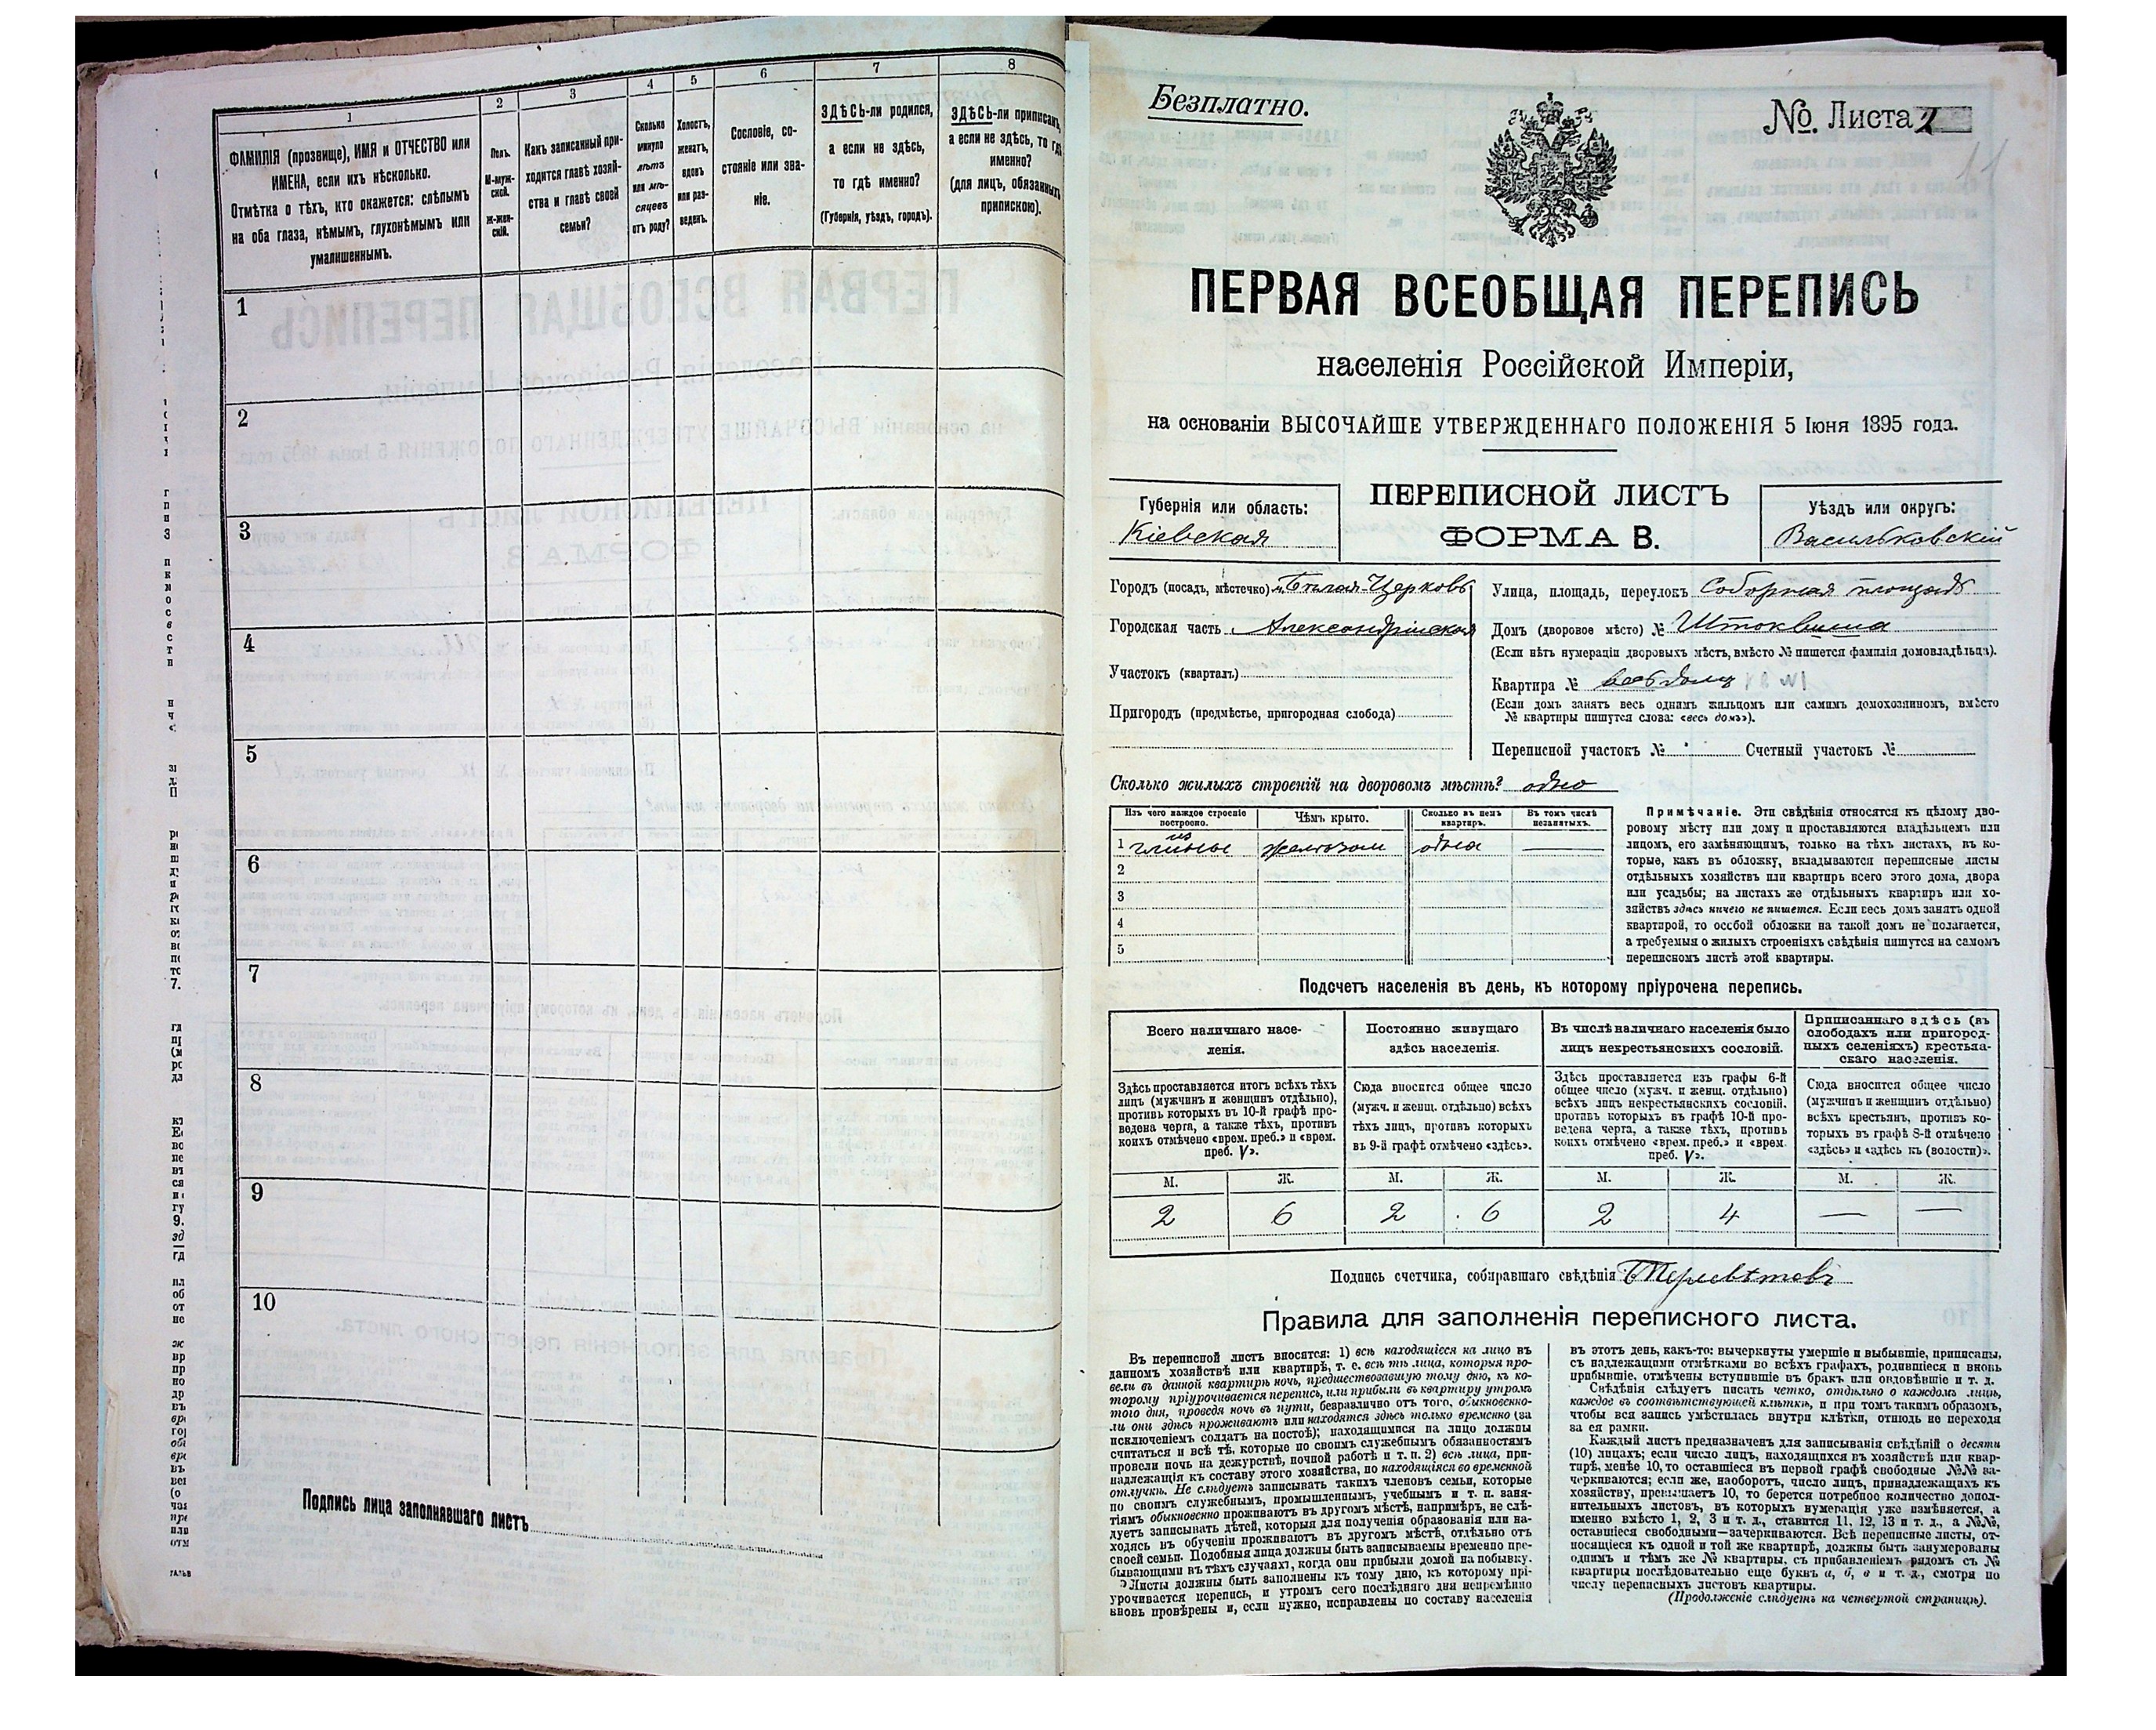 1
2
3
4
5
6
7
8
ФАМИЛІЯ (прозвище), ИМЯ и ОТЧЕСТВО или
ИМЕНА, если ихъ нѣсколько.
Отмѣтка о тѣхъ, кто окажется: слѣпымъ
на оба глаза, нѣмымъ, глухонѣмымъ или
умалишеннымъ.
Полъ.
М-муж-
ской.
Ж-жен-
скій.
Какъ записанный при-
ходится главѣ хозяй-
ства и главѣ своей
семьи?
Сколько
минуло
лѣтъ
или мѣ-
сяцевъ
отъ роду?
Холостъ,
женатъ,
вдовъ
или раз-
веденъ.
Сословіе, со-
стояніе или зва-
ніе.
ЗДѢСЬ-ли родился,
а если не здѣсь,
то гдѣ именно?
(Губернія, уѣздъ, городъ).
ЗДѢСЬ-ли приписанъ,
а если не здѣсь, то гдѣ
именно?
(для лицъ, обязанныхъ
припискою).
1
2
3
4
5
6
7
8
9
10
Подпись лица заполнявшаго листъ
Безплатно.
№. Листа 2
ПЕРВАЯ ВСЕОБЩАЯ ПЕРЕПИСЬ
населенія Россійской Имперіи,
на основаніи ВЫСОЧАЙШЕ УТВЕРЖДЕННАГО ПОЛОЖЕНІЯ 5 Іюня 1895 года.
Губернія или область:
Кіевская
ПЕРЕПИСНОЙ ЛИСТЪ
ФОРМА В.
Уѣздъ или округъ:
Васильковскій
Городъ (посадъ, мѣстечко) м. Бѣлая-Церковь
Городская часть Александрійская
Участокъ (кварталъ)
Пригородъ (предмѣстье, пригородная слобода)
Улица, площадь, переулокъ Соборная площадь
Домъ (дворовое мѣсто) № Штоквиша
(Если нѣтъ нумераціи дворовыхъ мѣстъ, вмѣсто № пишется фамилія домовладѣльца).
Квартира № весь домъ
(Если домъ занятъ весь однимъ жильцомъ или самимъ домохозяиномъ, вмѣсто
№ квартиры пишутся слова: «весь домъ»).
Переписной участокъ № Счетный участокъ №
Сколько жилыхъ строеній на дворовомъ мѣстѣ? одно
Изъ чего каждое строеніе построено.
Чѣмъ крыто.
Сколько въ немъ квартиръ.
Въ томъ числѣ незанятыхъ.
1 из глины желѣзом одна
2
3
4
5
Примѣчаніе. Эти свѣдѣнія относятся къ цѣлому дво-
ровому мѣсту или дому и проставляются владѣльцемъ или
лицомъ, его замѣняющимъ, только на тѣхъ листахъ, въ ко-
торые, какъ въ обложку, вкладываются переписные листы
отдѣльныхъ хозяйствъ или квартиръ всего этого дома, двора
или усадьбы; на листахъ же отдѣльныхъ квартиръ или хо-
зяйствъ здѣсь ничего не пишется. Если весь домъ занятъ одной
квартирой, то особой обложки на такой домъ не полагается,
а требуемыя о жилыхъ строеніяхъ свѣдѣнія пишутся на самомъ
переписномъ листѣ этой квартиры.
Подсчетъ населенія въ день, къ которому пріурочена перепись.
Всего наличнаго насе-
ленія.
Здѣсь проставляется итогъ всѣхъ тѣхъ
лицъ (мужчинъ и женщинъ отдѣльно),
противъ которыхъ въ 10-й графѣ про-
ведена черта, а также тѣхъ, противъ
коихъ отмѣчено «врем. преб.» и «врем.
преб. V».
Постоянно живущаго
здѣсь населенія.
Сюда вносится общее число
(мужч. и женщ. отдѣльно) всѣхъ
тѣхъ лицъ, противъ которыхъ
въ 9-й графѣ отмѣчено «здѣсь».
Въ числѣ наличнаго населенія было
лицъ некрестьянскихъ сословій.
Здѣсь проставляется изъ графы 6-й
общее число (мужч. и женщ. отдѣльно)
всѣхъ лицъ некрестьянскихъ сословій.
противъ которыхъ въ графѣ 10-й про-
ведена черта, а также тѣхъ, противъ
коихъ отмѣчено «врем. преб.» и «врем.
преб. V».
Приписаннаго здѣсь (въ
слободахъ или пригород-
ныхъ селеніяхъ) крестьян-
скаго населенія.
Сюда вносится общее число
(мужчинъ и женщинъ отдѣльно)
всѣхъ крестьянъ, противъ ко-
торыхъ въ графѣ 8-й отмѣчено
«здѣсь» и «здѣсь къ (волости)».
М. Ж. М. Ж. М. Ж. М. Ж.
2 6 2 6 2 4 — —
Подпись счетчика, собиравшаго свѣдѣнія
Правила для заполненія переписного листа.
Въ переписной листъ вносятся: 1) всѣ находящіеся на лицо въ
данномъ хозяйствѣ или квартирѣ, т. е. всѣ тѣ лица, которыя про-
вели въ данной квартирѣ ночь, предшествовавшую тому дню, къ ко-
торому пріурочивается перепись, или прибыли въ квартиру утромъ
того дня, проведя ночь въ пути, безразлично отъ того, обыкновенно-
ли они здѣсь проживаютъ или находятся здѣсь только временно (за
исключеніемъ солдатъ на постоѣ); находящимися на лицо должны
считаться и всѣ тѣ, которые по своимъ служебнымъ обязанностямъ
провели ночь на дежурствѣ, ночной работѣ и т. п. 2) всѣ лица, при-
надлежащія къ составу этого хозяйства, но находящіяся во временной
отлучкѣ. Не слѣдуетъ записывать такихъ членовъ семьи, которые
по своимъ служебнымъ, промышленнымъ, учебнымъ и т. п. заня-
тіямъ обыкновенно проживаютъ въ другомъ мѣстѣ, напримѣръ, не слѣ-
дуетъ записывать дѣтей, которыя для полученія образованія или на-
ходясь въ обученіи проживаютъ въ другомъ мѣстѣ, отдѣльно отъ
своей семьи. Подобныя лица должны быть записываемы временно пре-
бывающими въ тѣхъ случаяхъ, когда они прибыли домой на побывку.
Листы должны быть заполнены къ тому дню, къ которому прі-
урочивается перепись, и утромъ сего послѣдняго дня непремѣнно
вновь провѣрены и, если нужно, исправлены по составу населенія
въ этотъ день, какъ-то: вычеркнуты умершіе и выбывшіе, приписаны,
съ надлежащими отмѣтками во всѣхъ графахъ, родившіеся и вновь
прибывшіе, отмѣчены вступившіе въ бракъ или овдовѣвшіе и т. д.
Свѣдѣнія слѣдуетъ писать четко, отдѣльно о каждомъ лицѣ,
каждое въ соотвѣтствующей клѣткѣ, и при томъ такимъ образомъ,
чтобы вся запись умѣстилась внутри клѣтки, отнюдь не переходя
за ея рамки.
Каждый листъ предназначенъ для записыванія свѣдѣній о десяти
(10) лицахъ; если число лицъ, находящихся въ хозяйствѣ или квар-
тирѣ, менѣе 10, то оставшіеся въ первой графѣ свободные №№ за-
черкиваются; если же, наоборотъ, число лицъ, принадлежащихъ къ
хозяйству, превышаетъ 10, то берется потребное количество допол-
нительныхъ листовъ, въ которыхъ нумерація уже измѣняется, а
именно вмѣсто 1, 2, 3 и т. д., ставится 11, 12, 13 и т. д., а №№,
оставшіеся свободными—зачеркиваются. Всѣ переписные листы, от-
носящіеся къ одной и той же квартирѣ, должны быть занумерованы
однимъ и тѣмъ же № квартиры, съ прибавленіемъ рядомъ съ №
квартиры послѣдовательно еще буквъ а, б, в и т. д., смотря по
числу переписныхъ листовъ квартиры.
(Продолженіе слѣдуетъ на четвертой страницѣ).